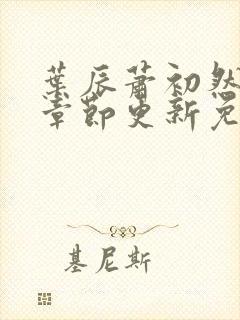 葉辰蕭初然
章節更新免
基尼斯